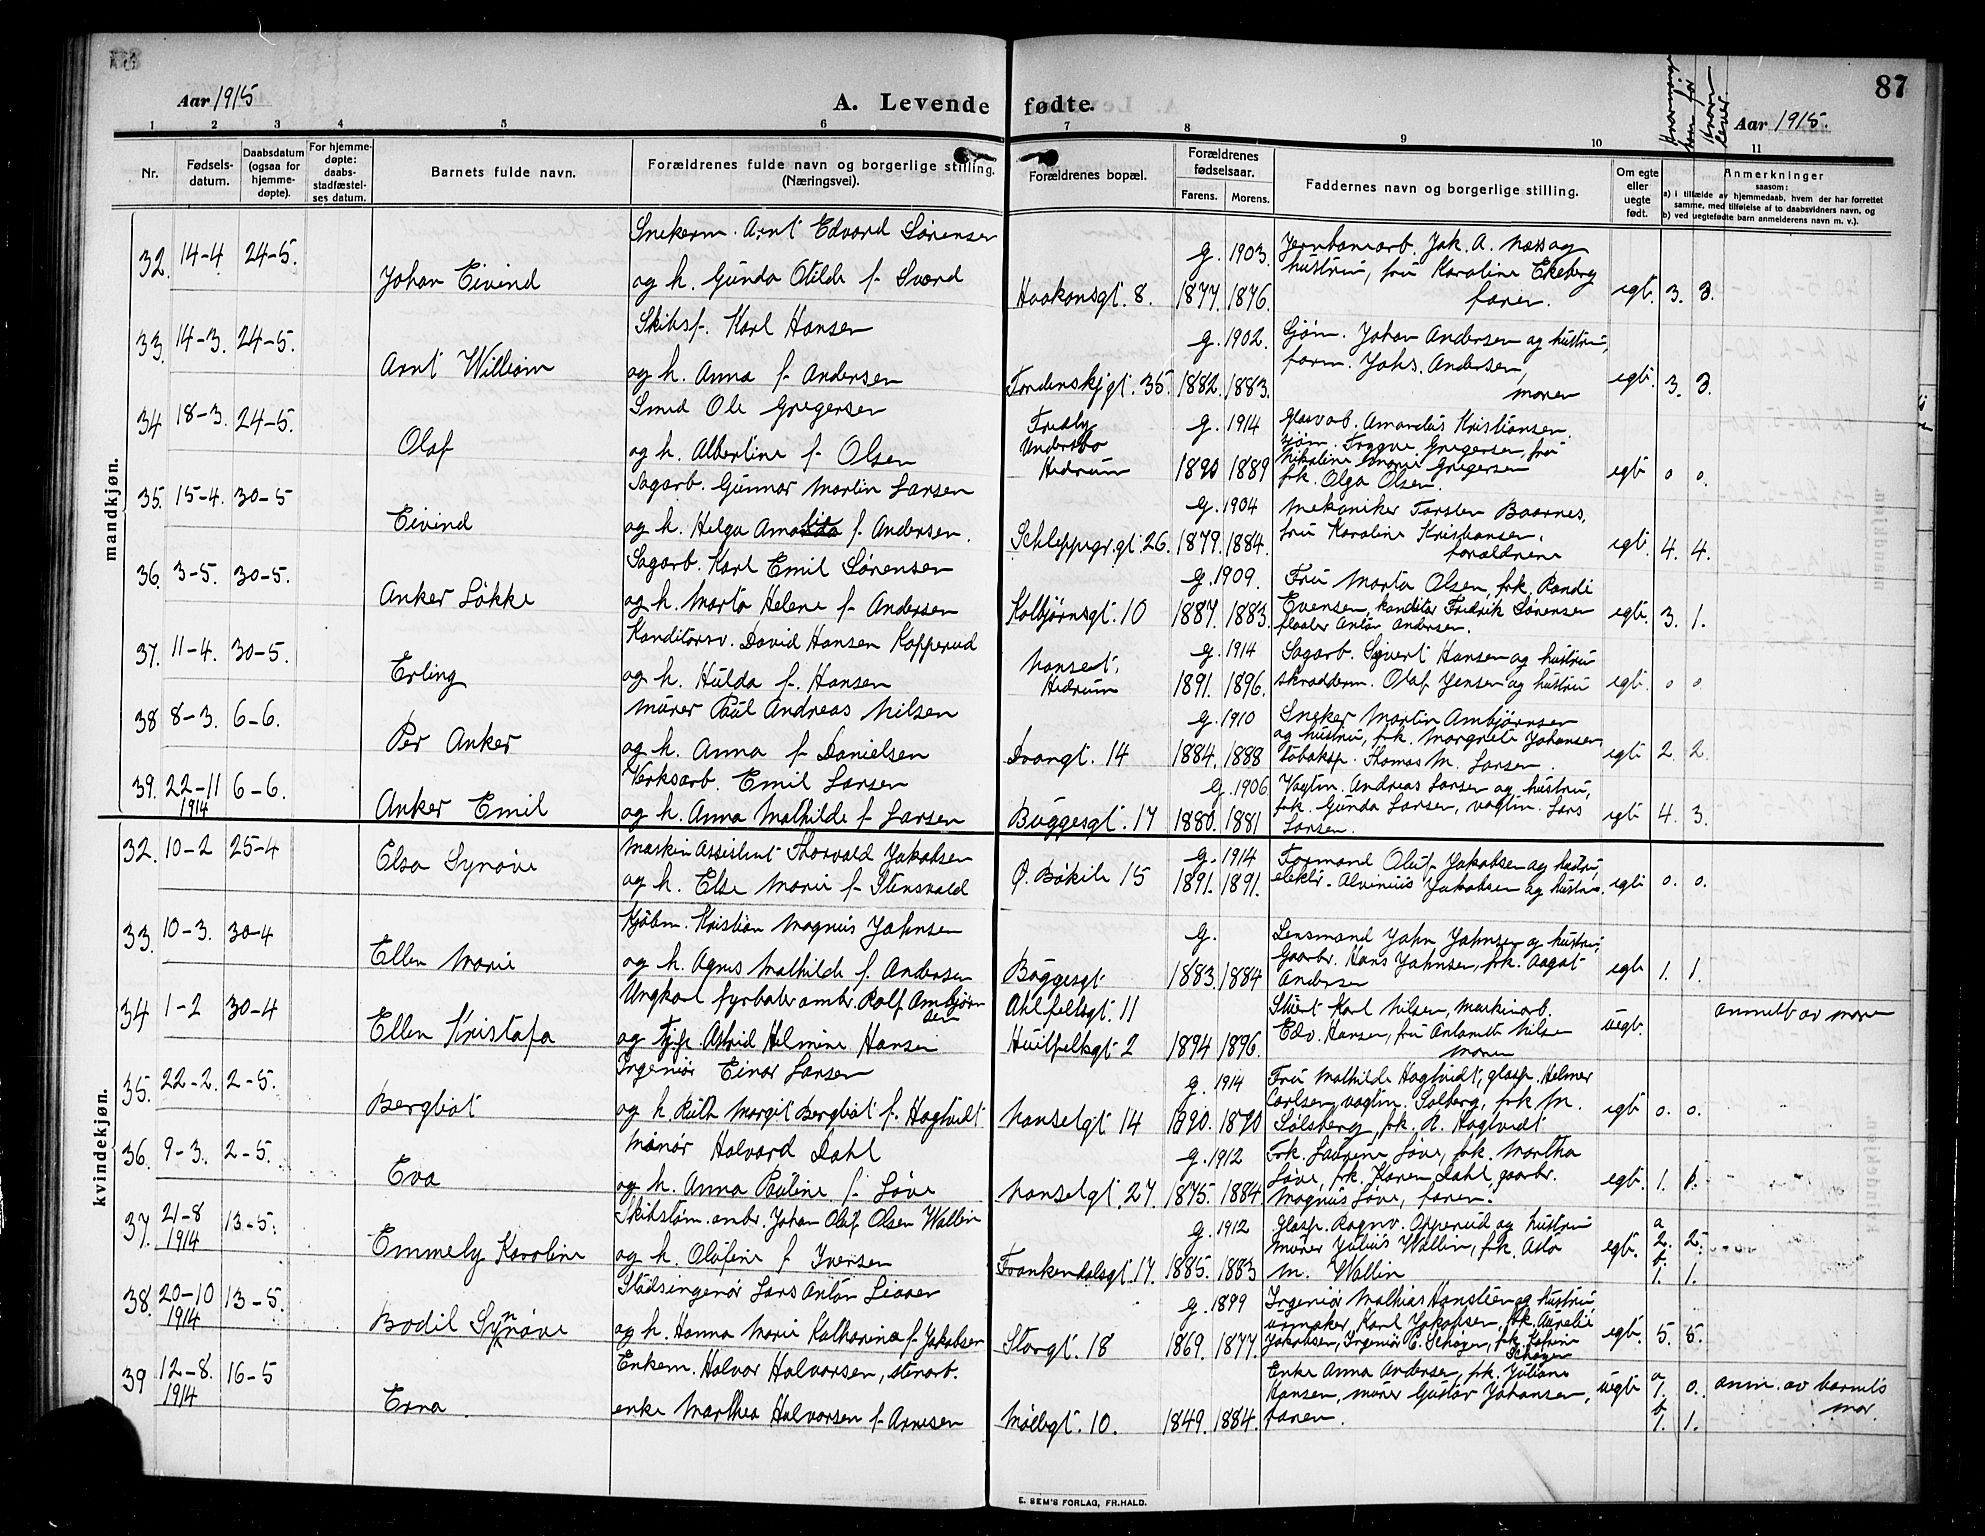 87
Aar 1915
A. Levende fødte.
Aar 1915.
1 2 3 4 5 6 7 8 9 10 11
Nr.
Fødsels-
datum.
Daabsdatum
(ogsaa for
hjemme-
døpte).
For hjemme-
døpte:
daabs-
stadfæstel-
ses datum.
Barnets fulde navn.
Forældrenes fulde navn og borgerlige stilling.
(Næringsvei).
Forældrenes bopæl.
Forældrenes
fødselsaar.
Farens. Morens.
Faddernes navn og borgerlige stilling.
Om egte
eller
uegte
født.
Anmerkninger
saasom:
a) i tilfælde av hjemmedaab, hvem der har forrettet
samme, med tilføielse af to daabsvidners navn, og
b) ved uegtefødte barn anmelderens navn m. v.).
mandkjøn.
32. 14-4 24-5. Johan Eivind
Snekerm. Arnt Edvard Sørensen
og h. Gunda Otilde f. Sværd
Haakonsgt. 8. g. 1903. 1877. 1876.
Jernbanearb. Jak. A. Næss og
hustru, fru Karoline Ekeberg
faren. egt. 3. 3.
33. 14-3. 24-5. Arnt William
Skibsf. Karl Hansen
og h. Anna f. Andersen
Tordenskj.gt. 35. g. 1902. 1882. 1883.
Sjøm. Johan Andersen og hustru,
form. Johs. Andersen,
moren egt. 3. 3.
34 18-3. 24-5. Olaf
Smed Ole Gregersen
og h. Albertine f. Olsen
Fredly
Undersbo
Hedrum g. 1914 1890 1889
Glasarb. Amandus Kristiansen.
sjøm. Trygve Gregersen, fru
Nikoline Marie Gregersen
frk. Olga Olsen. egt 0 0.
35. 15-4. 30-5 Eivind
Sagarb. Gunnar Martin Larsen
og h. Helga Amalie f. Andersen.
Schleppegr.gt 26. g. 1904 1879. 1884.
Mekaniker Torsten Baarnes,
fru Karoline Kristiansen,
forældrene egt. 4. 4.
36. 3-5. 30-5. Anker Løkke
Sagarb. Karl Emil Sørensen
og h. Marta Helene f. Andersen
Kolbjørnsgt. 10 g. 1909. 1887. 1883.
Fru Marta Olsen, frk. Randi
Evensen, konditor Fredrik Sørensen
fløater Anton Andersen. egt. 3. 1.
37. 11-4. 30-5. Erling
Konditorsv. David Hansen Kopperud
og h. Hulda f. Hansen
Nanset,
Hedrum g. 1914 1891. 1896.
Sagarb. Sivert Hansen og hustru
skrædderm. Olaf Jensen og hustru egt. 0 0.
38 8-3. 6-6. Per Anker
Murer Paul Andreas Nilsen
og h. Anna f. Danielsen
Trangt. 14 g. 1910 1884. 1888
Sneker Martin Ambjørnsen
og hustru, frk. Margrete Johansen,
tobaksp. Thomas M. Larsen. egt 2. 2.
39. 22-11
1914 6-6. Anker Emil
Verksarb. Emil Larsen
og h. Anna Mathilde f. Larsen
Buggesgt. 17 g. 1906 1880. 1881
Vagtm. Andreas Larsen og hustru,
frk. Gunda Larsen, vagtm. Lars
Larsen. egt 4. 3.
kvindekjøn.
32. 10-2 25-4 Elsa Synøve
Maskin Assistent Thorvald Jakobsen
og h. Else Marie f. Stensvold
Ø. Bøkile 15 g. 1914 1891. 1891.
Formand Oluf Jakobsen og hustru,
elektr. Alvinius Jakobsen og hustru. egt 0. 0.
33. 10-3. 30-4 Ellen Marie
Kjøbm. Kristian Magnus Jahnsen
og h. Agnes Mathilde f. Andersen
Buggesgt g. 1883. 1884
Lensmand Jahn Jahnsen og hustru,
Gaarbr. Hans Jahnsen, frk. Aagot
Andersen egt 1. 1.
34 1-2 30-4 Ellen Kristofa
Ungkarl fyrbøter ambr. Rolf Ambjørn
sen
og Tj.p. Astrid Helmine Hansen
Ahlfeltsgt. 11
Huitfeltsgt 2 1894 1896.
Stuert Karl Nilsen, maskinarb.
Edv. Hansen, fru Antonette Nilsen
moren uegt. anmeldt av moren
35. 22-2. 2-5. Bergliot
Ingeniør Einar Larsen
og h. Ruth Margit Bergliot f. Hogtvidt
Nansetgt 14 g. 1914 1890. 1890
Fru Mathilde Hogtvidt, glasp. Helmer
Carlsen, vagtm. Solberg, frk M.
Sølsberg, frk. R. Hogtvidt egt 0. 0.
36. 9-3. 2-5. Eva
Montør Halvard Dahl
og h. Anna Pauline f. Løve
Nansetgt. 27. g. 1912 1875. 1884
Frk. Laurine Løve, frk. Martha
Løve, frk. Karen Dahl, gaarbr.
Magnus Løve, faren. egt. 1. 1.
37. 21-8
1914 13-5. Emmely Karoline
Skibstøm. ambr. Johan Olaf Olsen Wallin
og h. Olufine f. Iversen
Frankendalsgt. 17. g. 1912 1885. 1883
Glasp. Ragnv. Opperud og hustru
murer Julius Wallin, frk. Asta
M. Wallin egt. a 2. 2. b. 1. 1.
38. 20-10
1914 13-5. Bodil Synnøve
Stadsingeniør Lars Anton Liaaen
og h. Hanna Marie Katharina f. Jakobsen
Storgt. 18 g. 1899 1869. 1877.
Ingeniør Mathias Hanstien og hustru,
urmaker Karl Jakobsen, frk. Aurelie
Jakobsen, Ingeniør E. Schøyen, frk. Katrin
Schøyen egt. 5. 5.
39 12-8.
1914 16-5 Erna
Enkem. Halvor Halvorsen, stenarb.
enke Marthea Halvorsen f. Arnesen
Møllegt. 10. 1849. 1884.
Enke Anna Andersen, frk. Juliane
Hansen, murer Gustav Johansen,
faren. uegt a 1. 0. b. 1. 1. anm. av barnets
mor.
E. SEM'S FORLAG, FR.HALD.